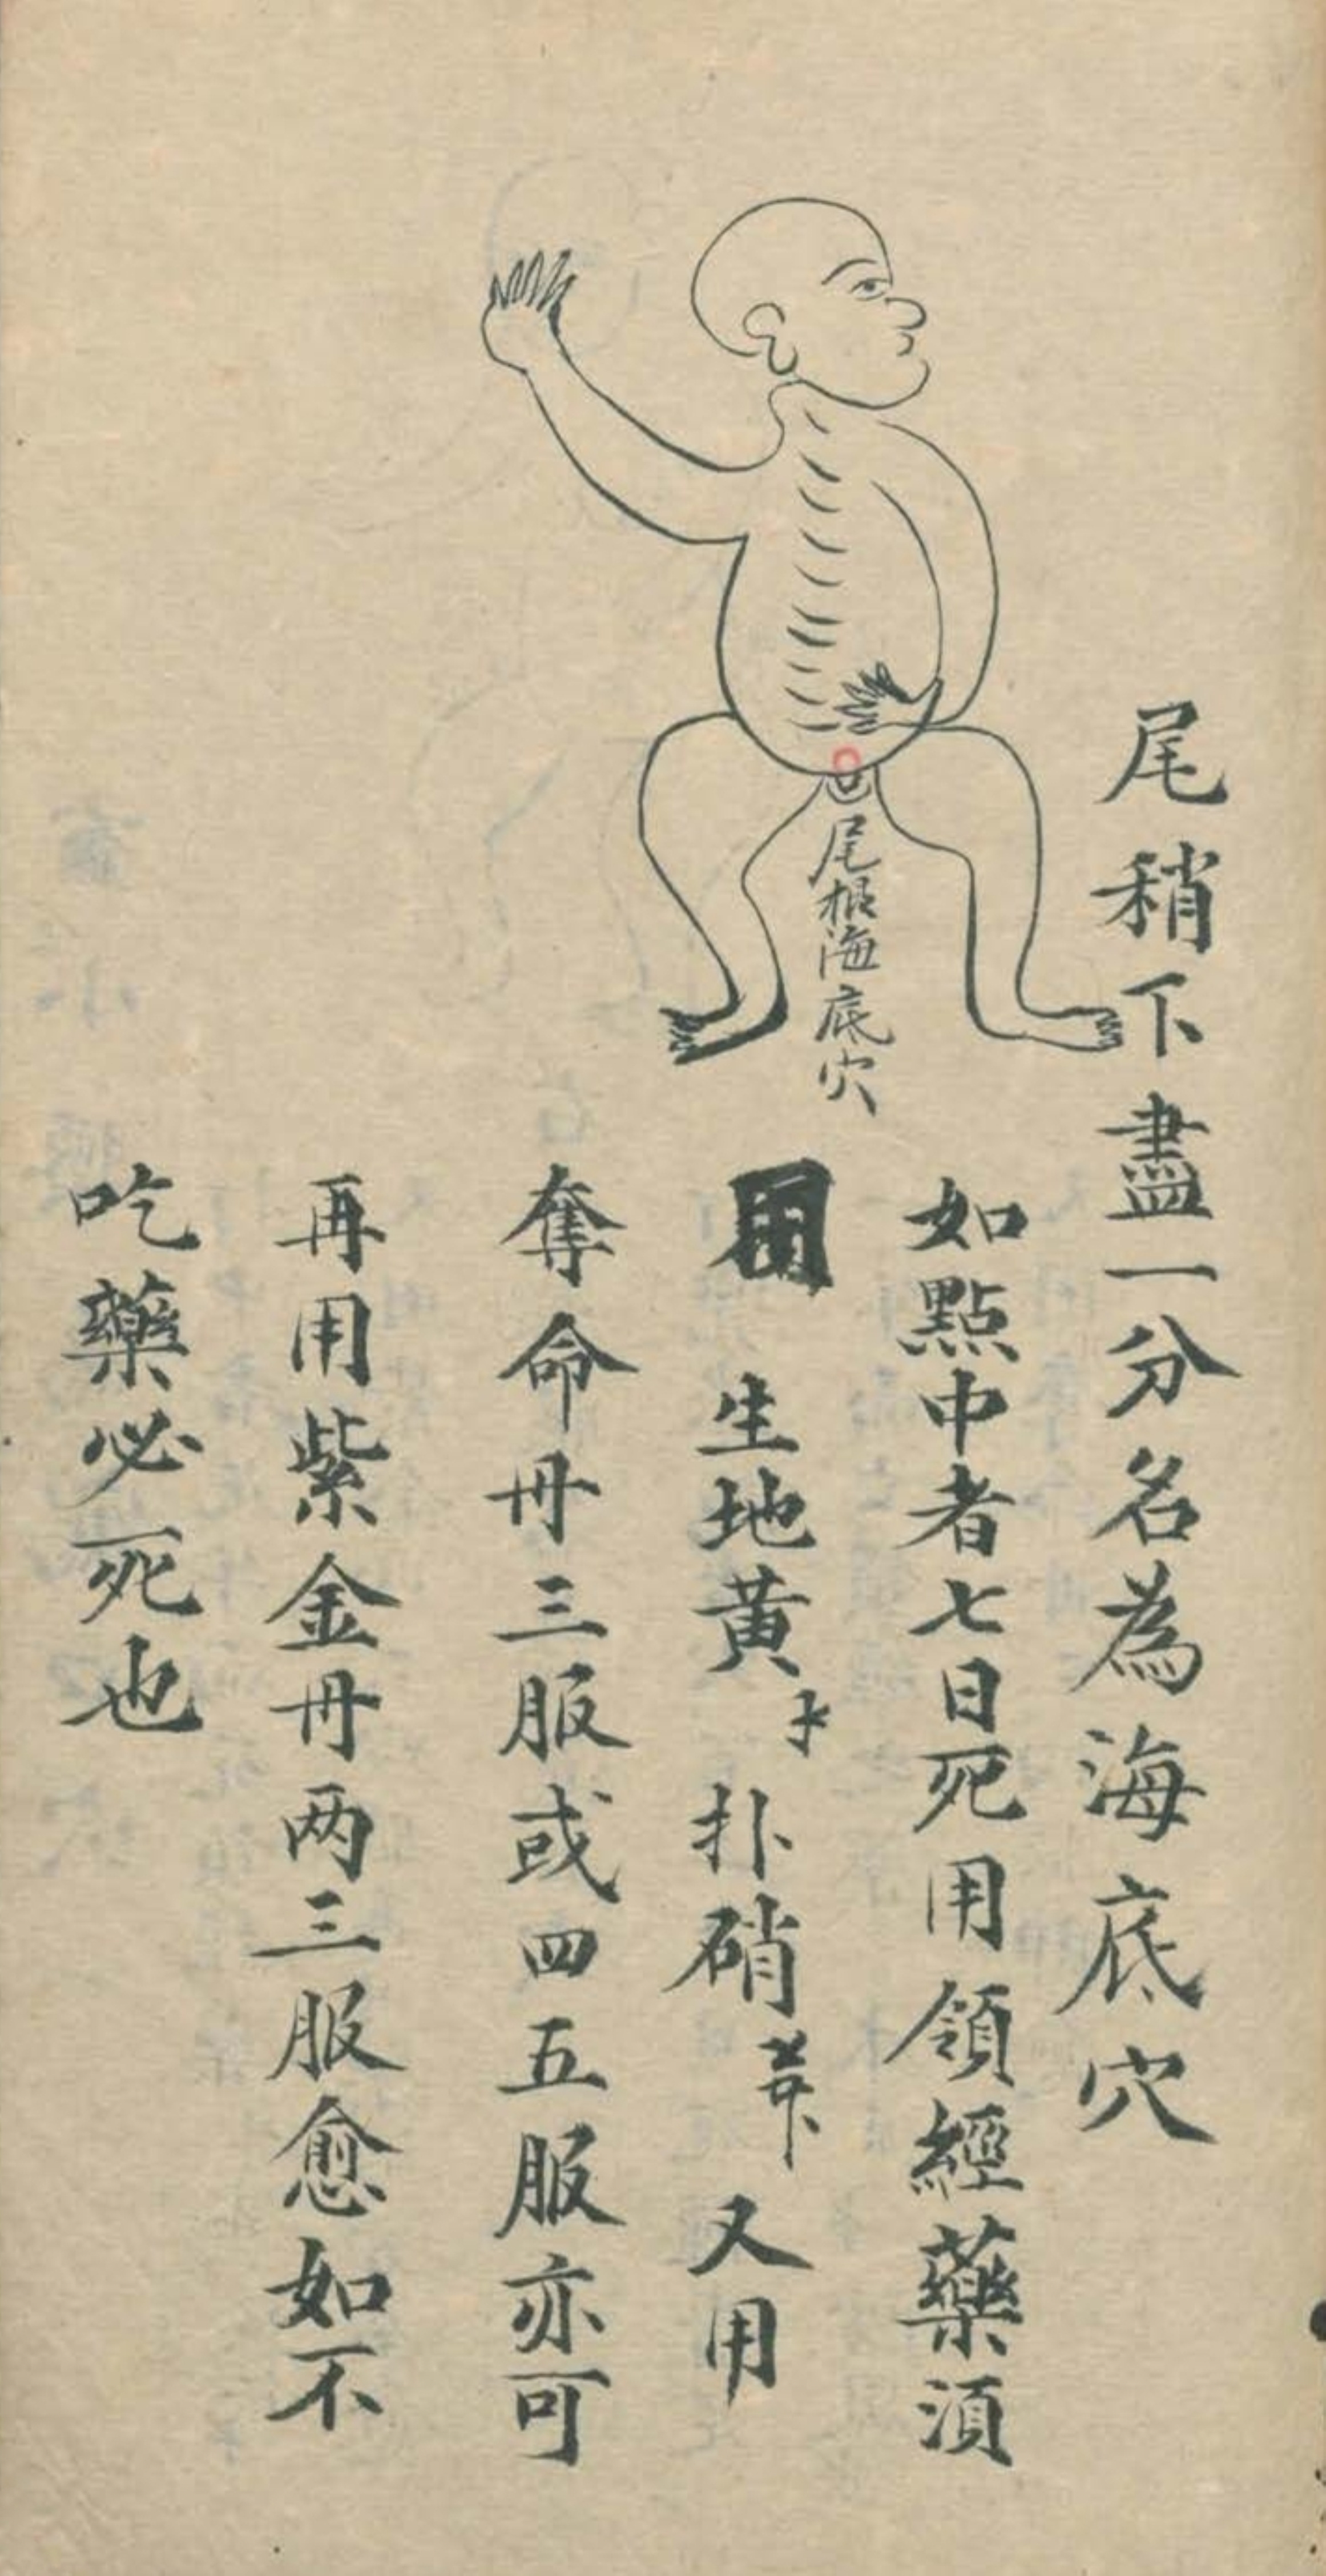 尾稍下盡一分名為海底穴
尾根海底穴
如點中者七日死用領經藥須
生地黃 扑硝 又用
奪命丹三服或四五服亦可
再用紫金丹两三服愈如不
吃藥必死也